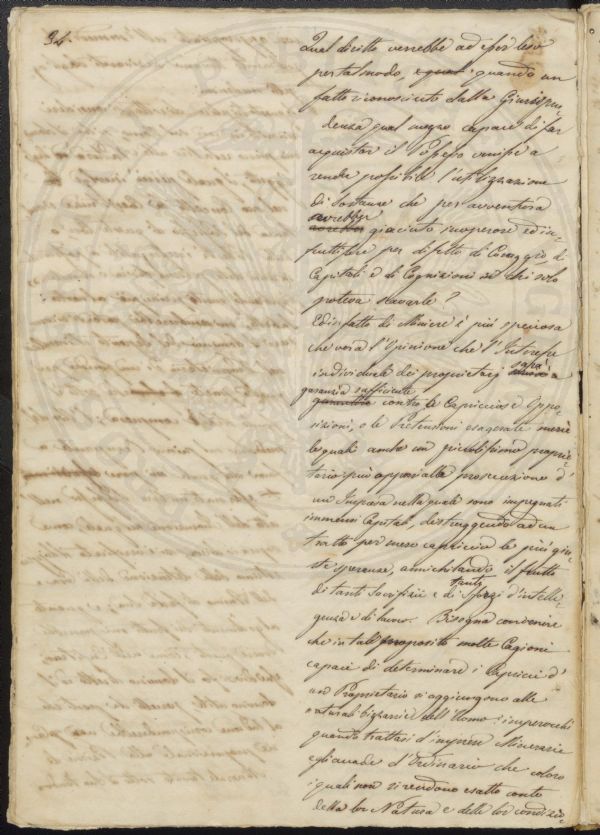 34.
Qual diritto verrebbe ad esser leso
per tal modo, quando un
fatto riconosciuto dalla Giurispru=
denza qual mezzo capace di far
acquistar il Possesso venisse a
render possibile l'utilizzazione
di sostanze che per avventura
avrebber
giaciuto inoperose ed in=
fruttifere per difetto di Coraggio di
Capitali e di Cognizioni in chi solo
poteva scavarle?
Ed in fatto di Miniere è più speciosa
che vera l'Opinione che l'Interesse
individuale dei proprietarj sarà
garanzia sufficiente
contro le Capricciose Oppo=
sizioni, e le Pretensioni esagerate mercè
le quali anche un piccolissimo proprie=
tario può opporsi alla prosecuzione d'
un Impresa nella quale sono impegnati
immensi Capitali, distruggendo ad un
tratto per mero capriccio le più giu=
ste speranze, annichilando il frutto
di tanti Sacrifizii e di tanti Sforzi d'intelli=
genza e di lavoro. Bisogna convenire
che in tal proposito molte Cagioni
capaci di determinare i Capricci d'
un Proprietario si aggiungono alle
naturali bizzarrie dell'Uomo; imperocchè
quando trattasi d'imprese Minerarie
egli accade d'Ordinario che coloro
i quali non si rendono esatto conto
della lor Natura e delle lor condizio=